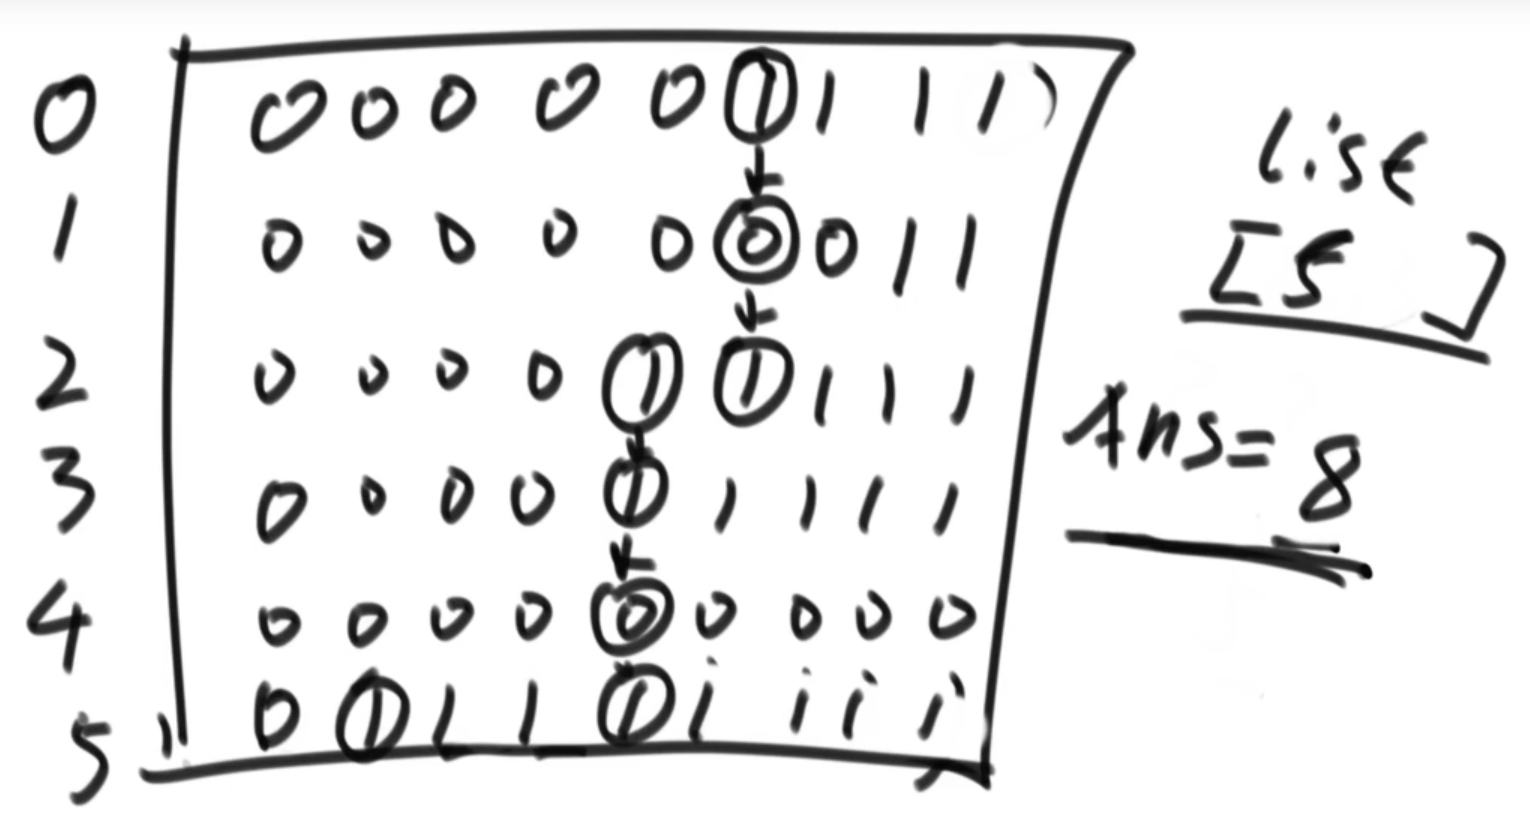 0 0 0 0 0 0 1 1 1 1
1 0 0 0 0 0 0 0 1 1
2 0 0 0 0 1 1 1 1 1
3 0 0 0 0 1 1 1 1 1
4 0 0 0 0 0 0 0 0 0
5 0 1 1 1 1 1 1 1 1
List
[5 ]
Ans=8